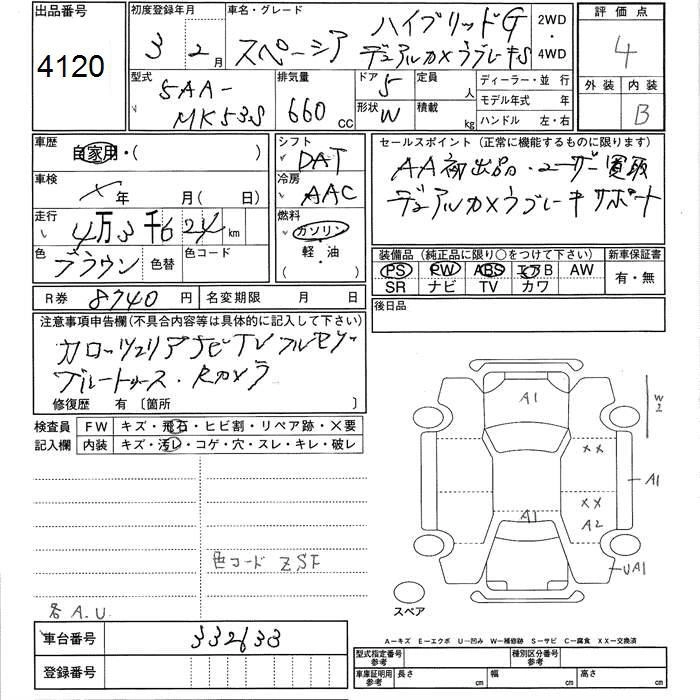 出品番号 初度登録年月 車名・グレード 評価点
4120 3年 2月 スペーシア ハイブリッドG 2WD・4WD 4
デュアルカメラブレーキS
型式 排気量 ドア 定員 ディーラー・並行 外装 内装
5AA-MK53S 660 CC 5 人 モデル年式 年 B
形状 W 積載 kg ハンドル 左・右
車歴 シフト セールスポイント(正常に機能するものに限ります)
自家用・( ) DAT AA初出品・ユーザー買取
車検 冷房 デュアルカメラブレーキサポート
年 月( 日) AAC
走行 燃料
4万3千624km ガソリン・軽・油 ( )
色 色替 色コード 装備品(純正品に限り○をつけて下さい) 新車保証書
ブラウン PS PW ABS エアB AW 有・無
SR ナビ TV カワ
R券 8740円 名変期限 月 日 後日品
注意事項申告欄(不具合内容等は具体的に記入して下さい)
カロッツェリアナビTVフルセグ
ブルートゥース・Rカメラ
修復歴 有〔箇所 〕
検査員 FW キズ・飛石・ヒビ割・リペア跡・×要
記入欄 内装 キズ・汚レ・コゲ・穴・スレ・キレ・破レ
A1
W2
XX
A1
XX
A1 A2
UA1
色コード ZSF
スペア
各A.U.
A-キズ E-エクボ U-凹み W-補修跡 S-サビ C-腐食 XX-交換済
車台番号 332633
登録番号
型式指定番号 参考 種別区分番号 参考
車庫証明用 参考 長さ cm 幅 cm 高さ cm